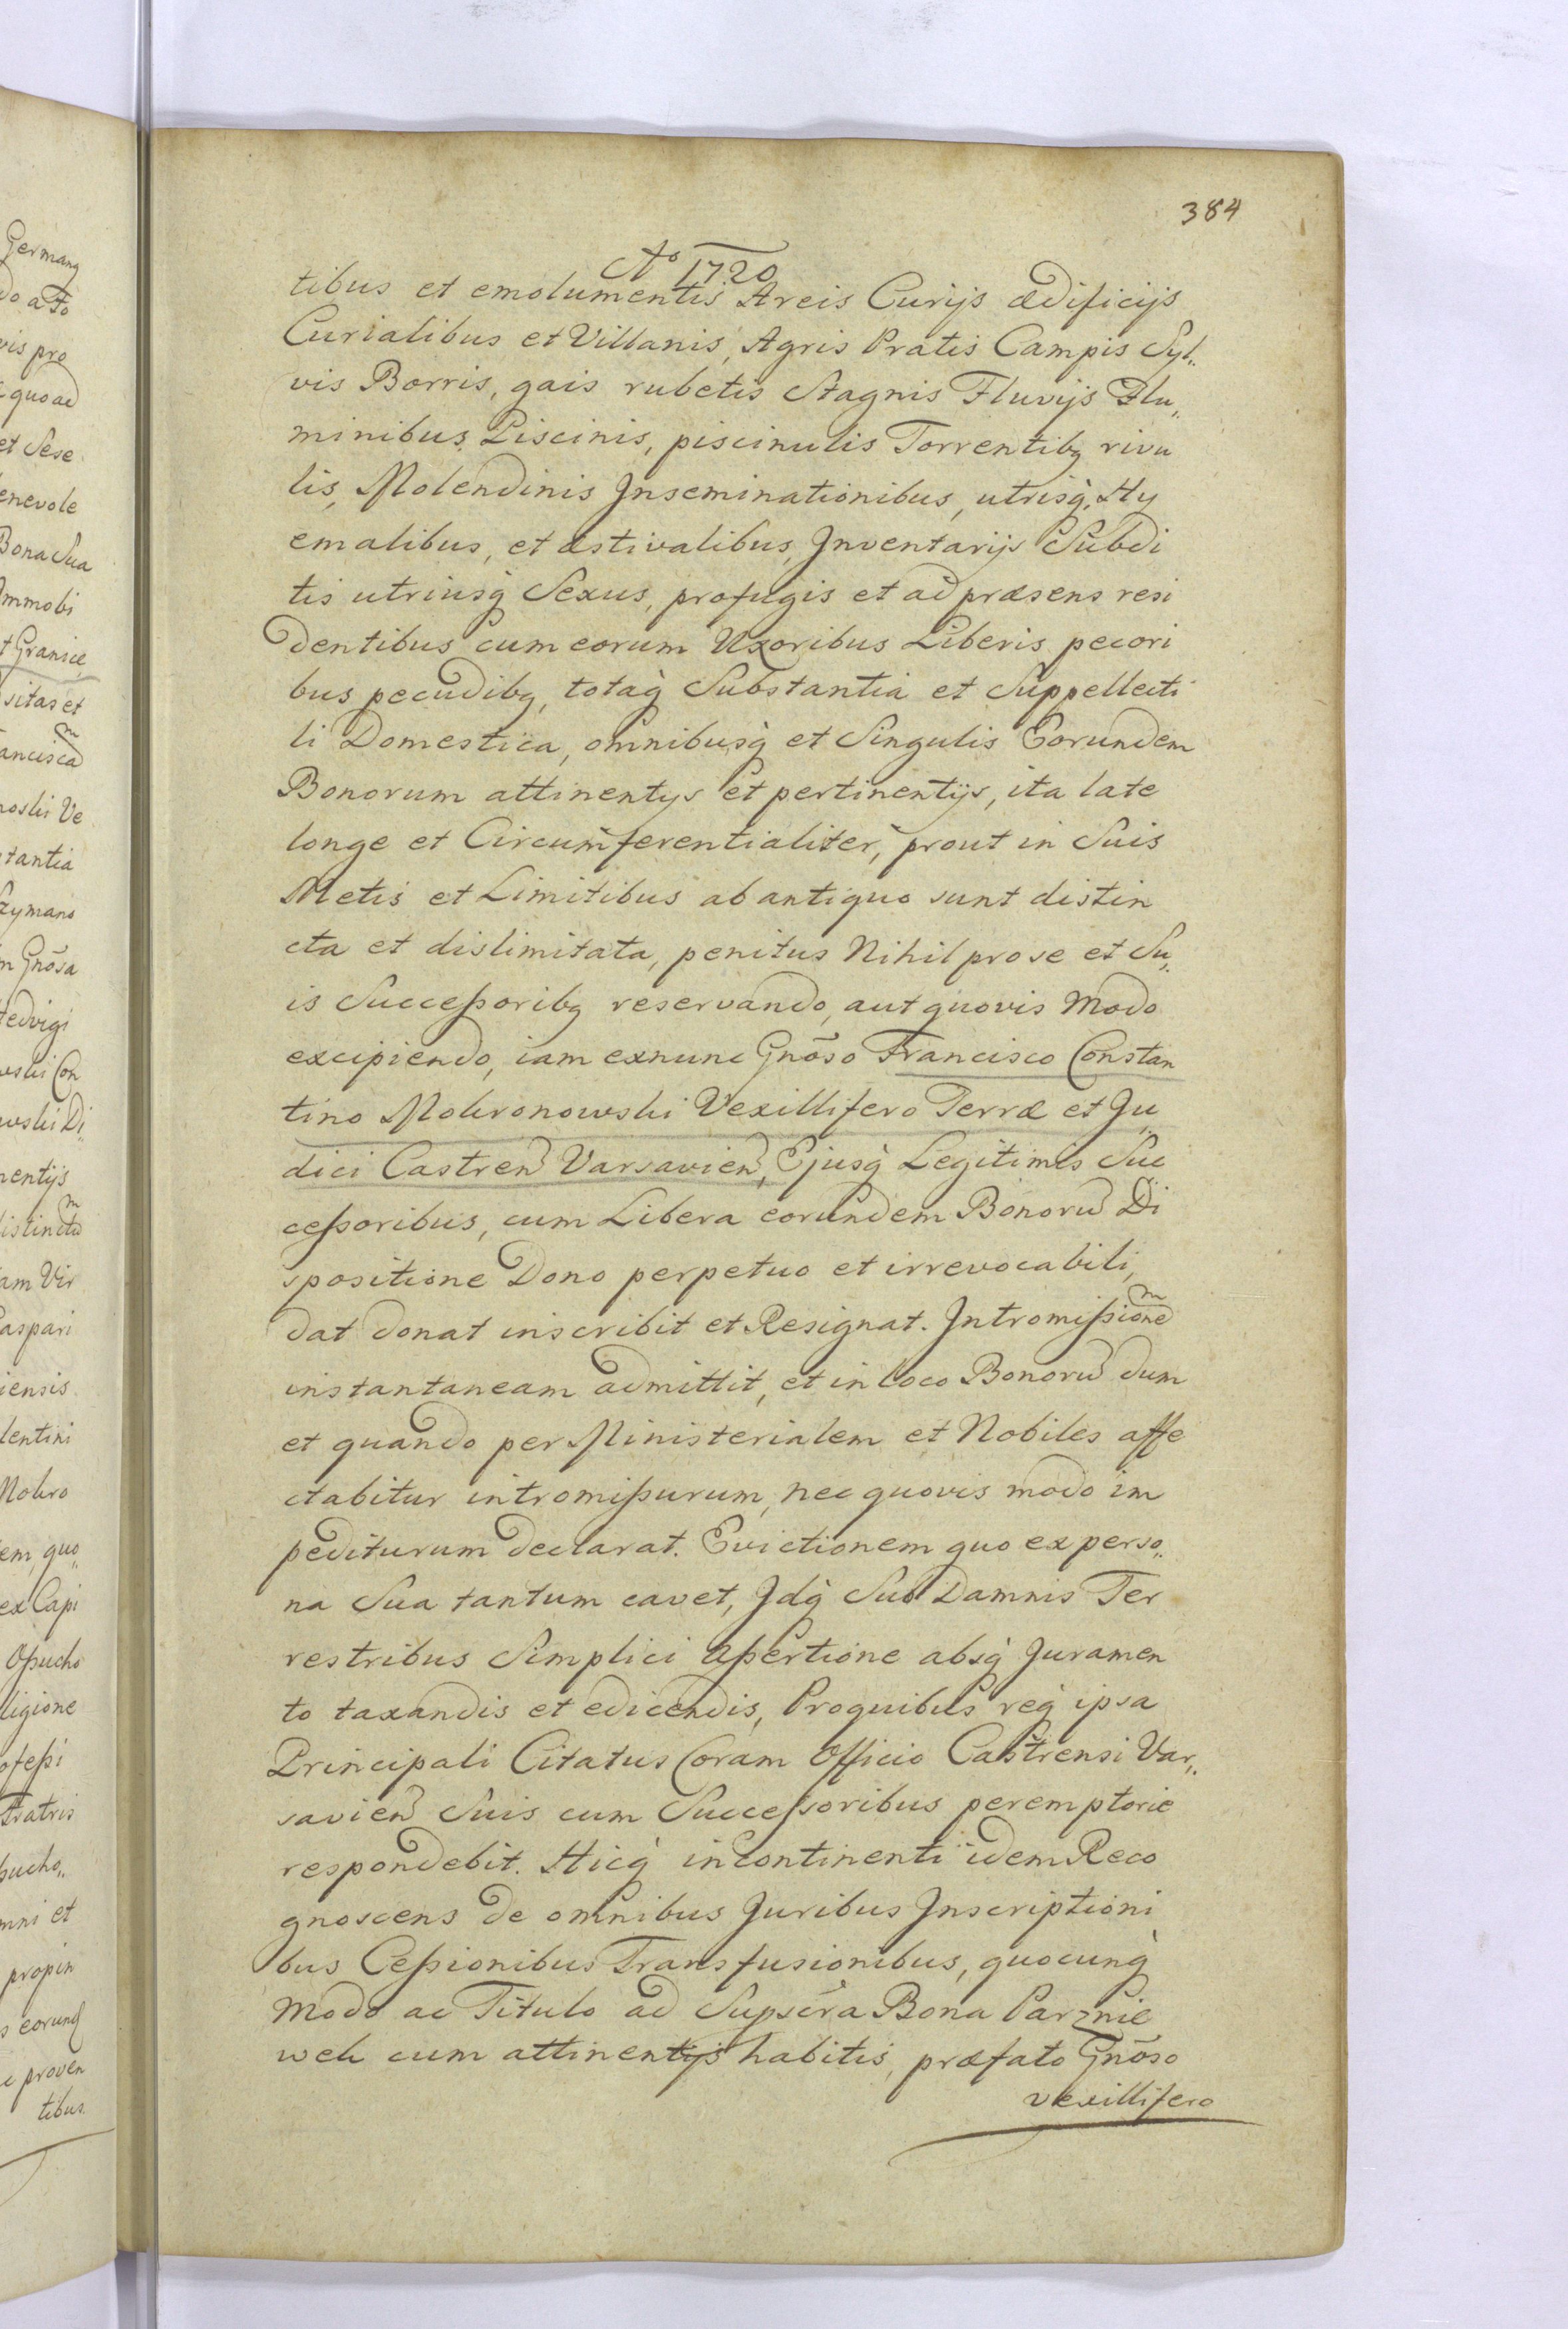 384
Aº 1720
tibus et emolumentis Areis Curijs ædificijs
Curialibus et Villanis, Agris Pratis Campis Syl„
vis Borris, gais rubetis Stagnis Fluvijs Flu„
minibus, Piscinis, piscinulis Torrentibꝫ rivu
lis, Molendinis Inseminationibus, utrisq̀, Hy
emalibus, et æstivalibus, Inventarijs Subdi
tis utriusq̀ Sexus, profugis et ad præsens resi
dentibus cum eorum Uxoribus Liberis pecori
bus pecudibꝫ, totaq̀ Substantia et Suppellecti
li Domestica, omnibusq̀ et Singulis Eorundem
Bonorum attinentys et pertinentijs, ita late
longe et Circumferentialiter, prout in Suis
Metis et Limitibus ab antiquo sunt distin
cta et dislimitata, penitus Nihil pro se et Su„
is Succeßoribꝫ reservando, aut quovis Modo
excipiendo, iam exnunc Gnõso Francisco Constan
tino Mokronowski Vexillifero Terræ et Ju„
dici Castren Varsavien, Ejusq̀ Legitimis Suc
ceßoribus, cum Libera eorundem Bonorũ Di
spositione Dono perpetuo et irrevocabili,
dat donat inscribit et Resignat. Intromißionem
instantaneam admittit, et in loco Bonorũ dum
et quando per Ministerialem et Nobiles affe
ctabitur intromißurum, nec quovis modo im
pediturum declarat. Evictionem quo ex perso„
na Sua tantum cavet, Idq̀ Sub Damnis Ter
restribus Simplici aßertione absq̀ Juramen
to taxandis et edicendis, Proquibus req̀ ipsa
Principali Citatus Coram Officio Castrensi Var„
savien Suis cum Succeſsoribus peremptorie
respondebit. Hicq̀ incontinenti idem Reco
gnoscens de omnibus Juribus Inscriptioni
bus Ceßionibus Transfusionibus, quocunq̀
Modo ac Titulo ad Supscra Bona Parznie
wek cum attinentijs habitis, præfato Gnõso
vexillifero